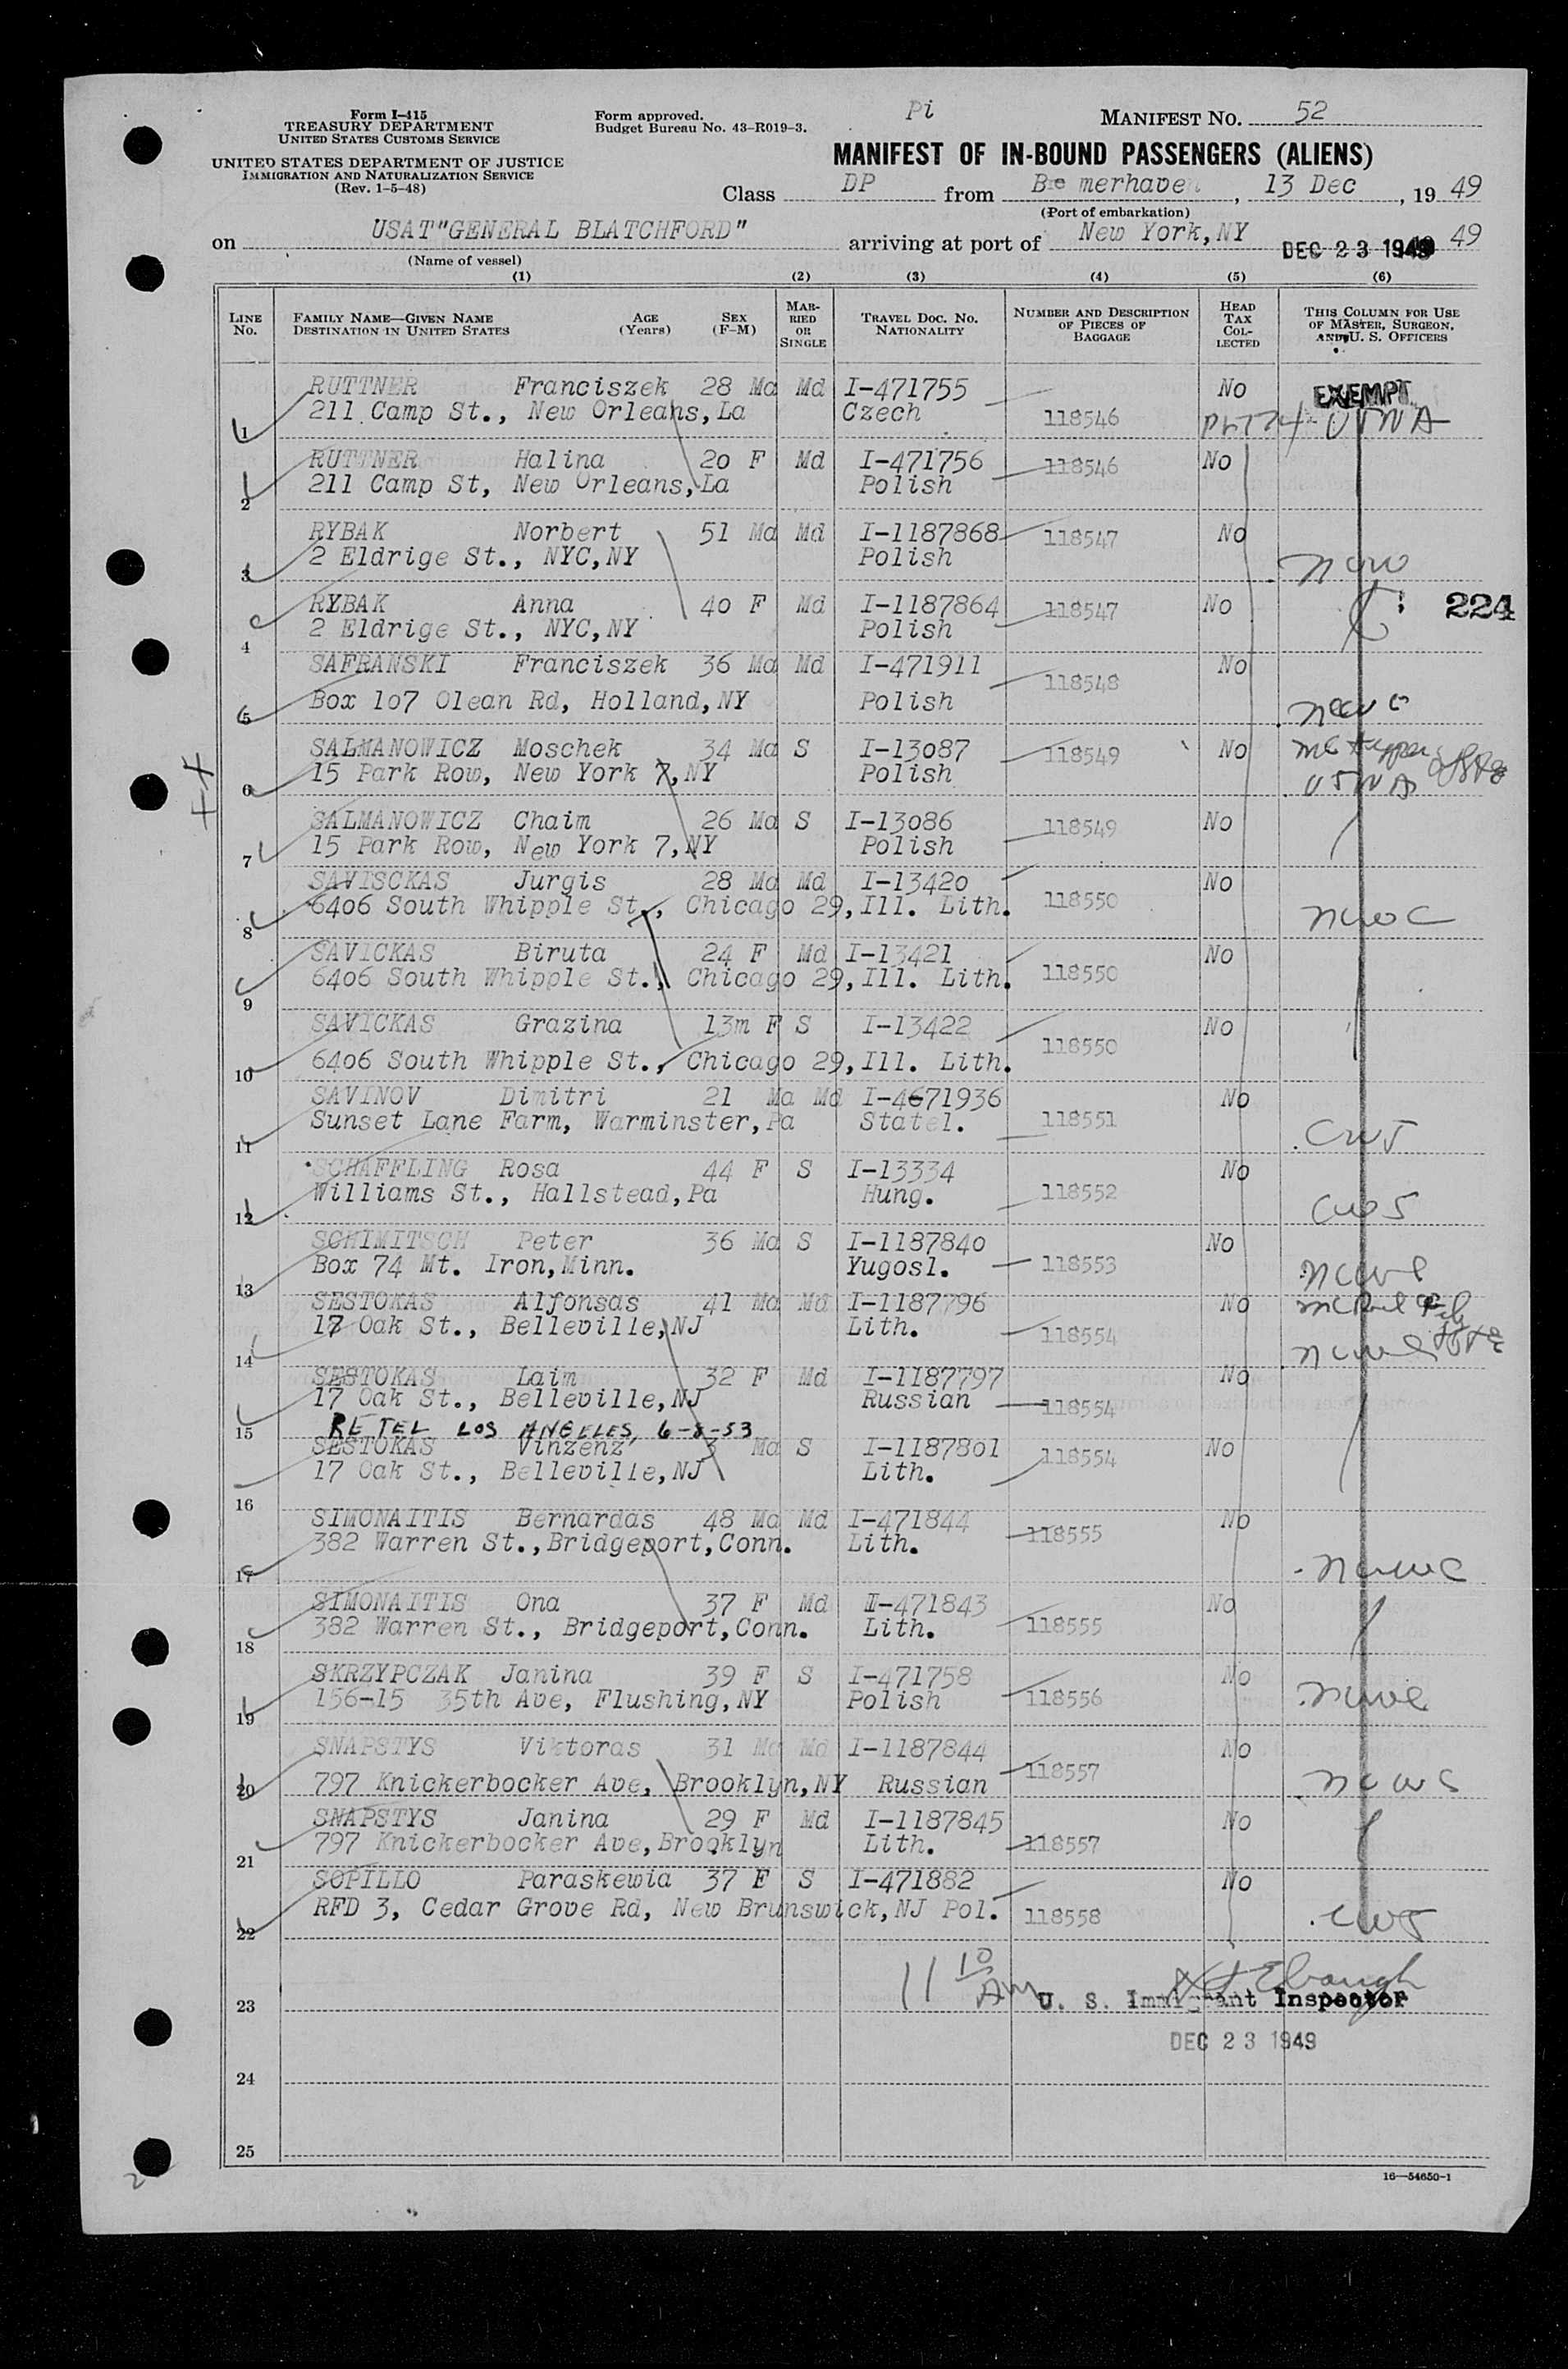 Form I-415
TREASURY DEPARTMENT
UNITED STATES CUSTOMS SERVICE
UNITED STATES DEPARTMENT OF JUSTICE
IMMIGRATION AND NATURALIZATION SERVICE
(Rev. 1-5-48)
Form approved.
Budget Bureau No. 43-R019-3.
Pi
MANIFEST NO. 52
MANIFEST OF IN-BOUND PASSENGERS (ALIENS)
Class DP from Bremerhaven, 13 Dec, 1949
(Port of embarkation)
on USAT"GENERAL BLATCHFORD" arriving at port of New York,NY DEC 23 1949 49
(Name of vessel)
(1) (2) (3) (4) (5) (6)
LINE NO. FAMILY NAME—GIVEN NAME DESTINATION IN UNITED STATES AGE (Years) SEX (F-M) MARRIED OR SINGLE TRAVEL DOC. NO. NATIONALITY NUMBER AND DESCRIPTION OF PIECES OF BAGGAGE HEAD TAX COLLECTED THIS COLUMN FOR USE OF MASTER, SURGEON, AND U. S. OFFICERS
RUTTNER Franciszek 28 Ma Md I-471755 No EXEMPT
1 211 Camp St., New Orleans,La Czech 118546 USNA
RUTTNER Halina 20 F Md I-471756 118546 No
2 211 Camp St, New Orleans,La Polish
RYBAK Norbert 51 Ma Md I-1187868 118547 No
3 2 Eldrige St., NYC,NY Polish
RYBAK Anna 40 F Md I-1187864 118547 No 224
4 2 Eldrige St., NYC,NY Polish
SAFRANSKI Franciszek 36 Ma Md I-471911 118548 No
5 Box 107 Olean Rd, Holland,NY Polish
SALMANOWICZ Moschek 34 Ma S I-13087 118549 No
6 15 Park Row, New York 7,NY Polish USNA
SALMANOWICZ Chaim 26 Ma S I-13086 118549 No
7 15 Park Row, New York 7,NY Polish
SAVISCKAS Jurgis 28 Ma Md I-13420 No
8 6406 South Whipple St., Chicago 29,Ill. Lith. 118550
SAVICKAS Biruta 24 F Md I-13421 No
9 6406 South Whipple St., Chicago 29,Ill. Lith. 118550
SAVICKAS Grazina 13m F S I-13422 No
10 6406 South Whipple St., Chicago 29,Ill. Lith. 118550
SAVINOV Dimitri 21 Ma Md I-4671936 No
11 Sunset Lane Farm, Warminster,Pa Statel. 118551
SCHAFFLING Rosa 44 F S I-13334 No
12 Williams St., Hallstead,Pa Hung. 118552
SCHIMITSCH Peter 36 Ma S I-1187840 No
13 Box 74 Mt. Iron,Minn. Yugosl. 118553
SESTOKAS Alfonsas 41 Ma Md I-1187796 No
14 17 Oak St., Belleville,NJ Lith. 118554
SESTOKAS Laim 32 F Md I-1187797 No
15 17 Oak St., Belleville,NJ Russian 118554
RE TEL LOS ANGELES, 6-8-53
SESTOKAS Vinzenz 3 Ma S I-1187801 118554 No
16 17 Oak St., Belleville,NJ Lith.
SIMONAITIS Bernardas 48 Ma Md I-471844 118555 No
17 382 Warren St.,Bridgeport,Conn. Lith.
SIMONAITIS Ona 37 F Md I-471843 No
18 382 Warren St., Bridgeport,Conn. Lith. 118555
SKRZYPCZAK Janina 39 F S I-471758 No
19 156-15 35th Ave, Flushing,NY Polish 118556
SNAPSTYS Viktoras 31 Ma Md I-1187844 No
20 797 Knickerbocker Ave, Brooklyn,NY Russian 118557
SNAPSTYS Janina 29 F Md I-1187845 No
21 797 Knickerbocker Ave,Brooklyn Lith. 118557
SOPILLO Paraskewia 37 F S I-471882 No
22 RFD 3, Cedar Grove Rd, New Brunswick,NJ Pol. 118558
11 10 AM
23 U. S. Immigrant Inspector
DEC 23 1949
24
25
16—54650-1